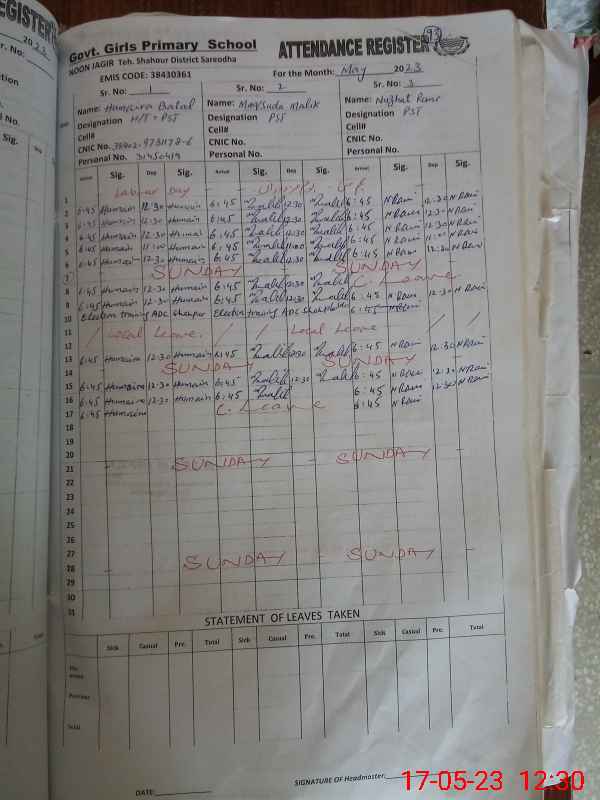 Govt. Girls Primary School
ATTENDANCE REGISTER
93
NOON JAGIR Teh. Shahpur District Sargodha
EMIS CODE: 38430361
For the Month: May 2023
Sr. No: 1
Sr. No: 2
Sr. No: 3
Name: Humaira Batool
Name: Maqsuda Malik
Name: Nuzhat Rani
Designation H/T - PST
Designation PST
Designation PST
Cell#
Cell#
Cell#
CNIC No.
CNIC No.
CNIC No.
Personal No. 31450419
Personal No.
Personal No.
Arrival Sig. Dep Sig. Arrival Sig. Dep Sig. Arrival Sig. Dep Sig.
1 Labour Day
2 6:45 Humaira 12:30 Humaira 6:45 Malik 12:30 Malik 6:45 N Rani 12:30 N Rani
3 6:45 Humaira 12:30 Humaira 6:45 Malik 12:30 Malik 6:45 N Rani 12:30 N Rani
4 6:45 Humaira 12:30 Humaira 6:45 Malik 12:30 Malik 6:45 N Rani 12:30 N Rani
5 6:45 Humaira 11:00 Humaira 6:45 Malik 11:00 Malik 6:45 N Rani 11:00 N Rani
6 6:45 Humaira 12:30 Humaira 6:45 Malik 12:30 Malik 6:45 N Rani 12:30 N Rani
7 SUNDAY SUNDAY
8 6:45 Humaira 12:30 Humaira 6:45 Malik 12:30 Malik C. Leave
9 6:45 Humaira 12:30 Humaira 6:45 Malik 12:30 Malik 6:45 N Rani 12:30 N Rani
10 Election training ADC Election training ADC 6:45 N Rani
11
12 Local Leave Local Leave
13 6:45 Humaira 12:30 Humaira 6:45 Malik 12:30 Malik 6:45 N Rani 12:30 N Rani
14 SUNDAY SUNDAY
15 6:45 Humaira 12:30 Humaira 6:45 Malik 12:30 Malik 6:45 N Rani 12:30 N Rani
16 6:45 Humaira 12:30 Humaira 6:45 Malik 6:45 N Rani 12:30 N Rani
17 6:45 Humaira C. Leave 6:45 N Rani
18
19
20
21 SUNDAY - SUNDAY
22
23
24
25
26
27
28 SUNDAY - SUNDAY
29
30
31
STATEMENT OF LEAVES TAKEN
Sick Casual Pre. Total Sick Casual Pre. Total Sick Casual Pre. Total
Previous
Total
DATE:
SIGNATURE OF Headmaster:
17-05-23 12:30